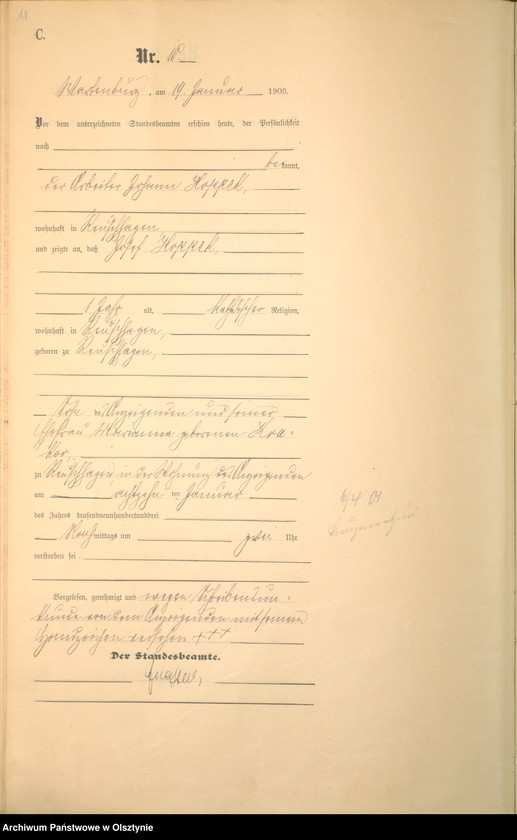 11
C.
Nr. 10
Wartenburg, am 19. Januar 1903.
Vor dem unterzeichneten Standesbeamten erschien heute, der Persönlichkeit
nach
bekannt,
der Arbeiter Johann Hoppek,
wohnhaft in Reuschhagen
und zeigte an, daß Josef Hoppek,
1 Jahr alt, katholischer Religion,
wohnhaft in Reuschhagen,
geboren zu Reuschhagen,
Sohn des Anzeigenden und seiner
Ehefrau Marianna geborenen
zu Reuschhagen, in der Wohnung des Anzeigenden
am achtzehnten Januar
des Jahres tausendneunhundertunddrei
Nachmittags um zwei Uhr
verstorben sei.
Vorgelesen, genehmigt und wegen Schreibensun-
kunde von dem Anzeigenden mit seinem
Handzeichen versehen +++
Der Standesbeamte.
6/4 01
Archiwum Państwowe w Olsztynie